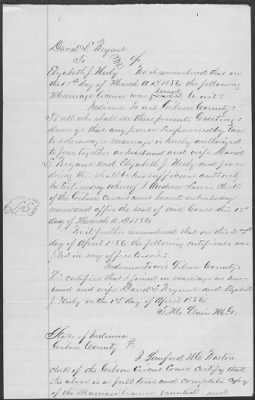 David L. Bryant
To
Elizabeth J. Huly Be it remembered that on
this 17th day of March A.D. 1856 the following
Marriage License was issued to wit:
Indiana To wit Gibson County:
To all who shall see these presents Greeting:
know ye that any person empowered by law
to solemnize marriage is hereby authorized
to join together as husband and wife David
L Bryant and Elizabeth J Huly and for so
doing this shall be his sufficient authority
In testimony whereof I Andrew Lewis clerk
of the Gibson Circuit Court hereunto subscribe my
name and affix the seal of said Court this 17th
day of March A.D. 1856
Be it further remembered that on this 2nd
day of April 1856 the following certificate was
filed in my office to wit:
Indiana To wit Gibson County:
certify that I joined in marriage as hus-
band and wife David L Bryant and Elizabeth
J Huly on the 1st day of April 1856
M.G.
State of Indiana
Gibson County
I
clerk of the Gibson Circuit Court certify that
the above is a full true and complete copy
of the Marriage License granted and